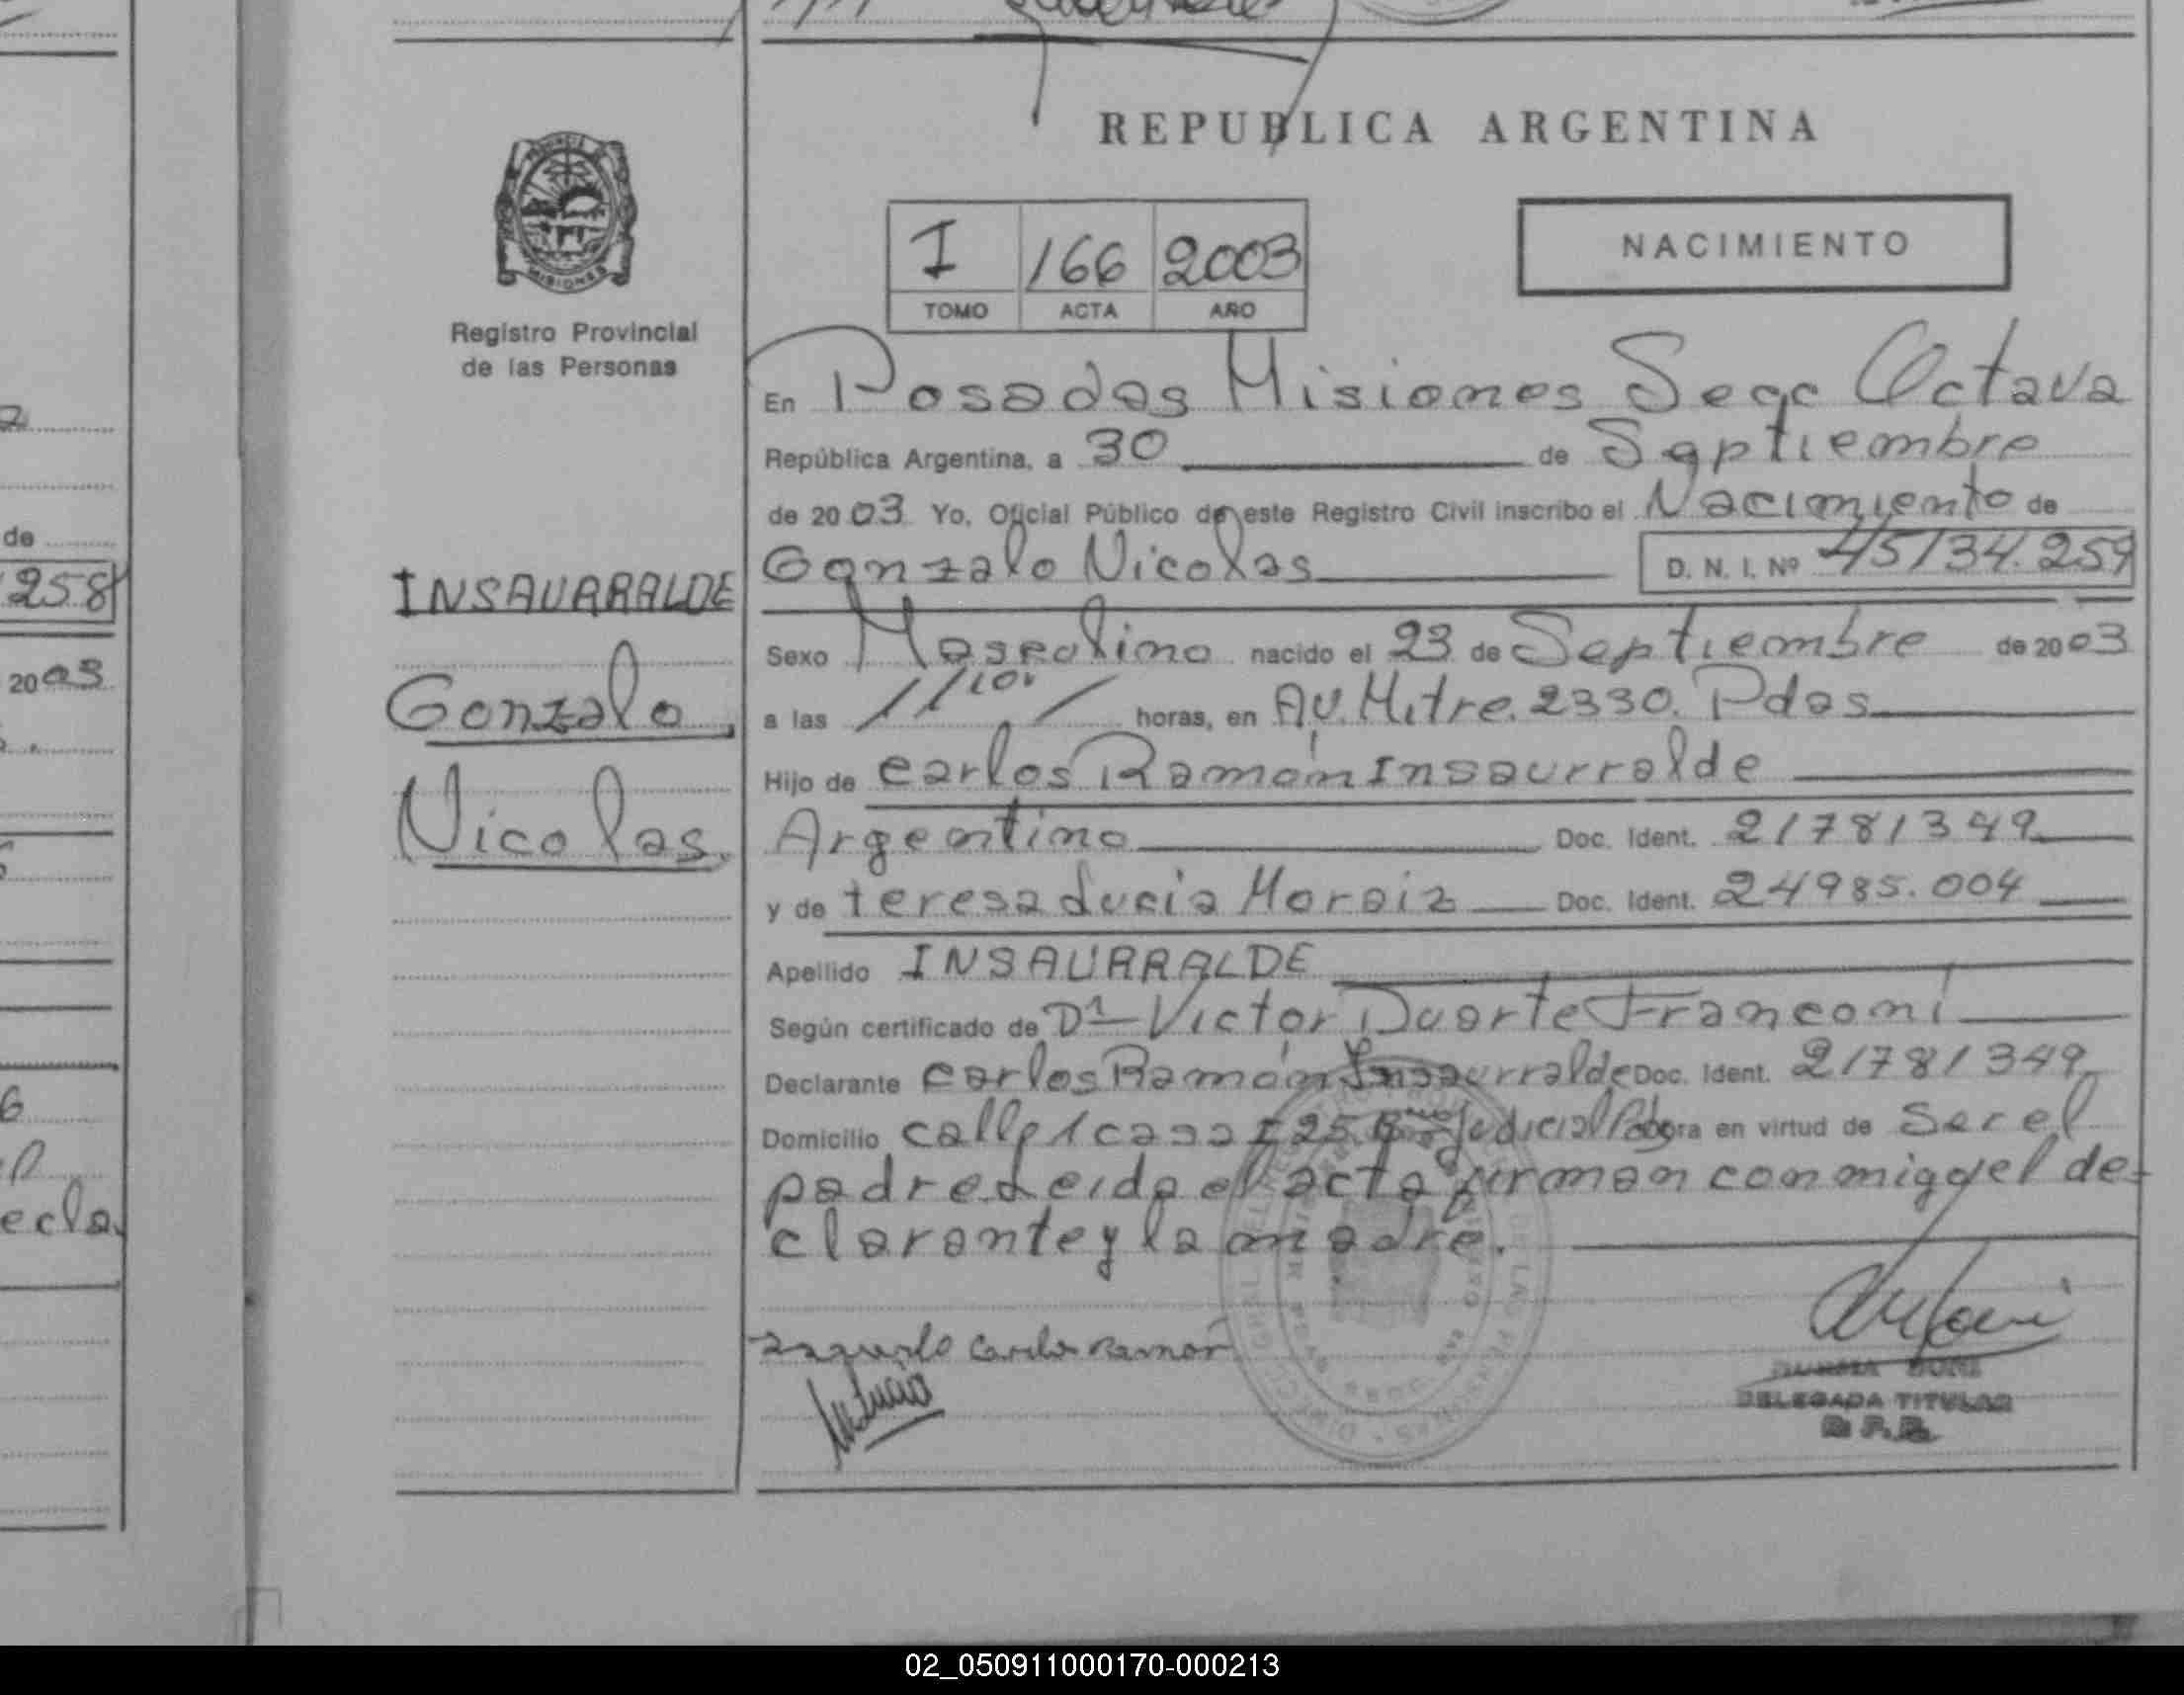 REPUBLICA ARGENTINA
PROVINCIA DE
MISIONES
Registro Provincial
de las Personas
I 166 2003
TOMO ACTA AÑO
NACIMIENTO
En Posadas Misiones Secc Octava
República Argentina, a 30 de Septiembre
de 2003 Yo, Oficial Público de este Registro Civil inscribo el Nacimiento de
Gonzalo Nicolas D. N. I. Nº 45134.259
INSAURRALDE
Gonzalo,
Nicolas,
Sexo Masculino nacido el 23 de Septiembre de 2003
a las 11/10 horas, en AV. Mitre. 2330. Pdas
Hijo de Carlos Ramón Insaurralde
Argentino Doc. Ident. 21781349
y de teresa Lucia Doc. Ident. 24985.004
Apellido INSAURRALDE
Según certificado de Victor Duarte Franconi
Declarante Carlos Ramón Insaurralde Doc. Ident. 21781349
Domicilio calle 1 casa en virtud de Ser el
padre Leida el acta firman conmigo el de-
clarante y la madre.
Carlos Ramon
DELEGADA TITULAR
258
de
2003
ecla
02_050911000170-000213